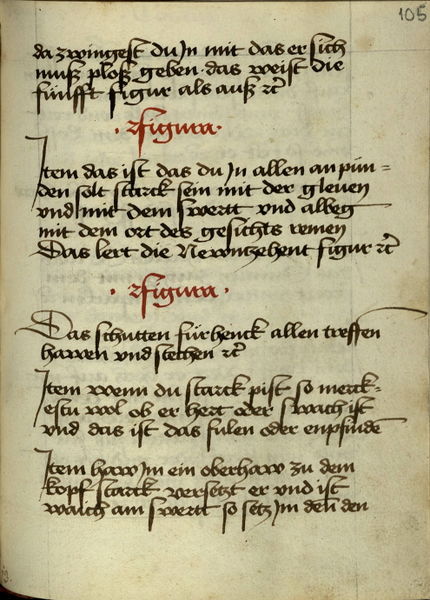 105
da zwingest du In mit das er sich
muß ploß geben · das weist die
fünfft figur als auß rc̄
· Figura ·
Item das ist das du In allen anpün=
den solt starck sein mit der glenen
vnd mit dem swertt vnd albeg
mit dem ort des gesichts remen
Das lert die Newnzehent figur rc̄
· Figura ·
Das schutten fürhenck allen treffen
hawen vnd stechen rc̄
Item wenn du starck pist so merck=
estu wol ob er hert oder swach ist
vnd das ist das fulen oder enpfinde̅
Item haw Im ein oberhaw zu dem
kopf starck versetzt er vnd ist
waich am swertt so setz Im den den